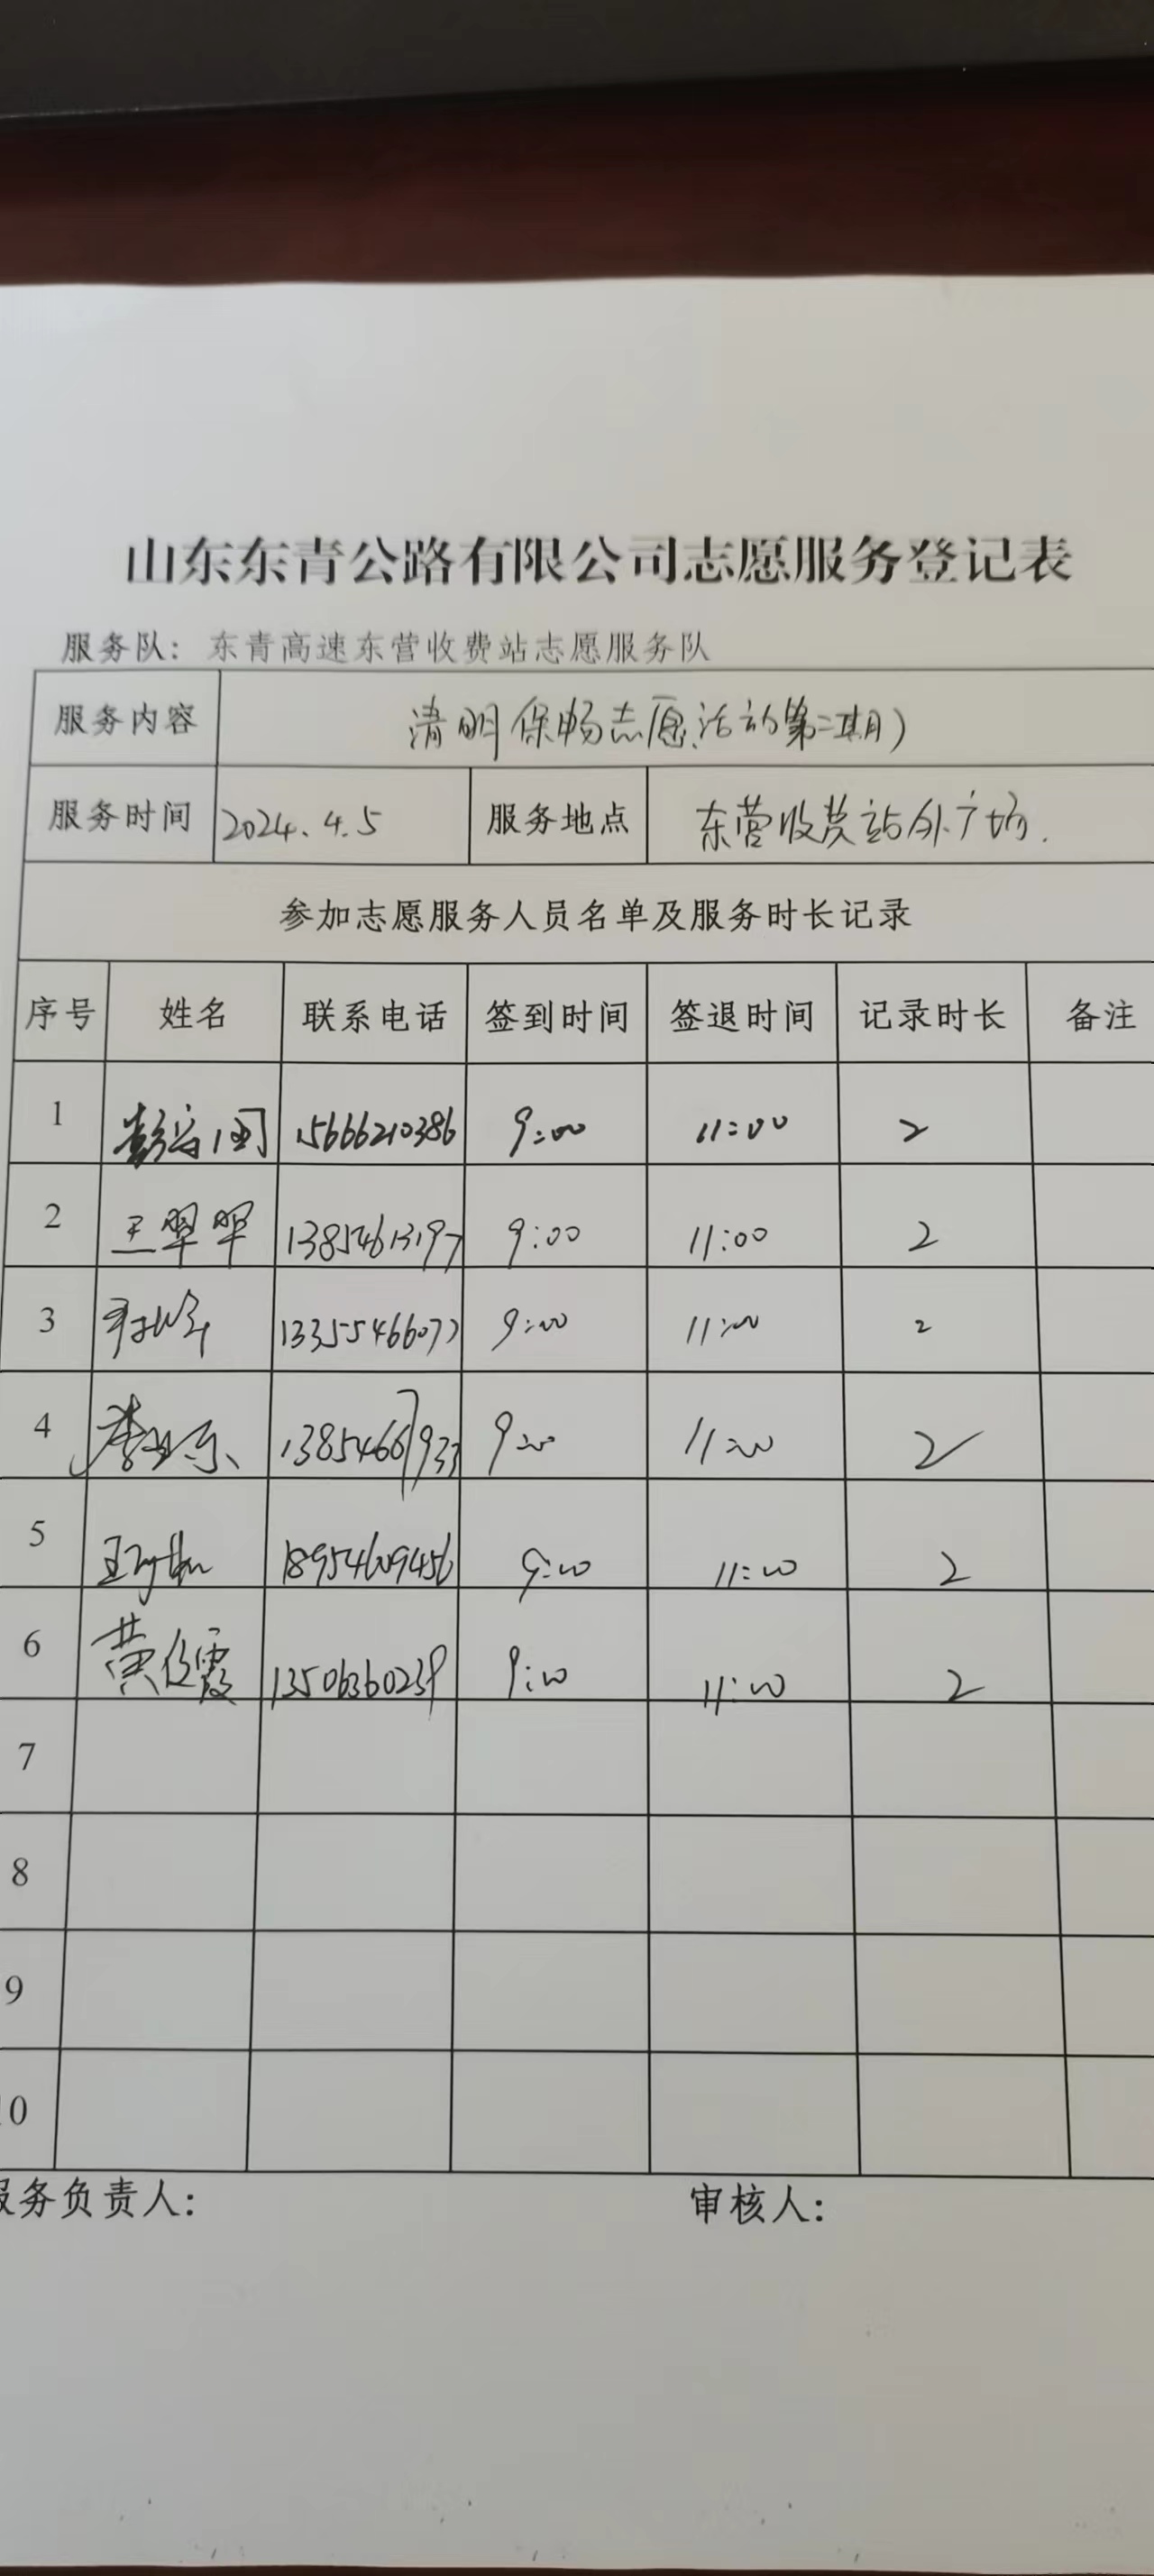 山东东青公路有限公司志愿服务登记表
服务队：东青高速东营收费站志愿服务队
服务内容 清明保畅志愿活动第二期)
服务时间 2024.4.5 服务地点 东营收费站外广场.
参加志愿服务人员名单及服务时长记录
序号 姓名 联系电话 签到时间 签退时间 记录时长 备注
1 15666210386 9:00 11:00 2
2 王翠翠 13854613197 9:00 11:00 2
3 13355466077 9:00 11:00 2
4 13854667933 9:00 11:00 2
5 18954609456 9:00 11:00 2
6 黄俊霞 13506360239 9:00 11:00 2
7
8
9
10
服务负责人： 审核人：